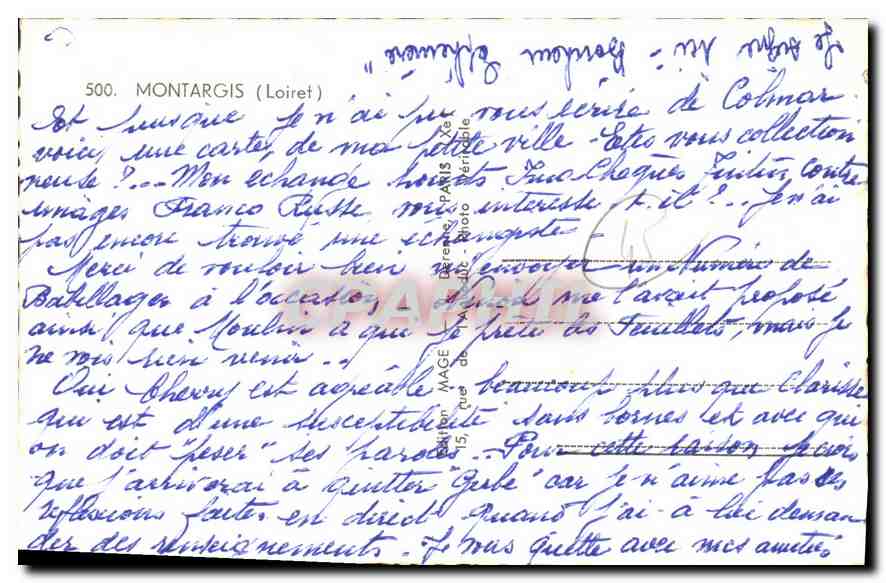 Je signe ici "Bonheur Ephémère"
500. MONTARGIS (Loiret)
Et puisque je n'ai pu vous écrire de Colmar
voici, une carte, de ma petite ville - Etes vous collection
neuse ?... Mon échange points Tintin, contre
images Franco Russe vous intéresse t-il ?.. Je n'ai
pas encore trouvé une échangiste -
Merci de vouloir bien m'envoyer un Numéro de
Babillages à l'occasion, me l'avait proposé
ainsi que Moulin à qui je prête les Feuillets, mais je
ne vois rien venir...
Oui Cherry est agréable - beaucoup plus que Clarisse
qui est d'une susceptibilité sans bornes et avec qui
on doit "peser" ses paroles.. Pour cette raison je crois
que j'arriverai à quitter "Gerbe" car je n'aime pas ces
réflexions faites en direct quand j'ai à lui deman
der des renseignements - Je vous quitte avec mes amitiés
Edition MAGE - Derenne, PARIS Xe
15, rue de l'Aqueduc - Photo véritable
45
CPAPHIL